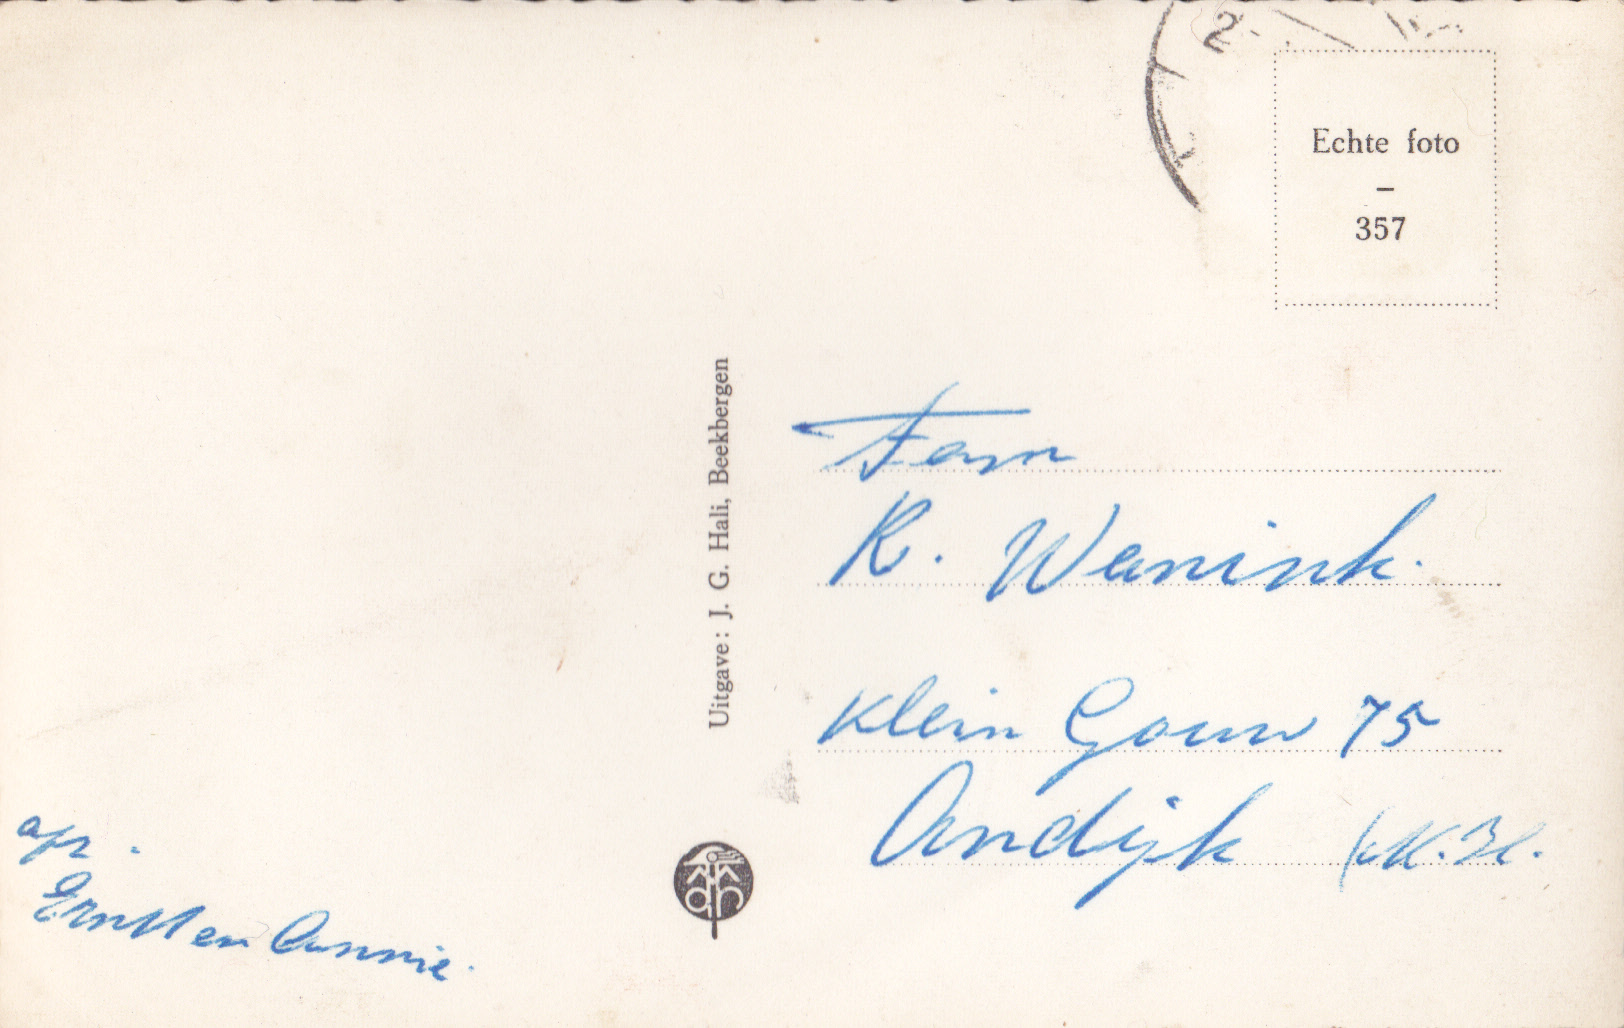 Echte foto
–
357
Uitgave: J. G. Hali, Beekbergen
Fam
R. Wanink.
Klein Gouw 75
Andijk (N.H.
afz.
Ernst en Annie.